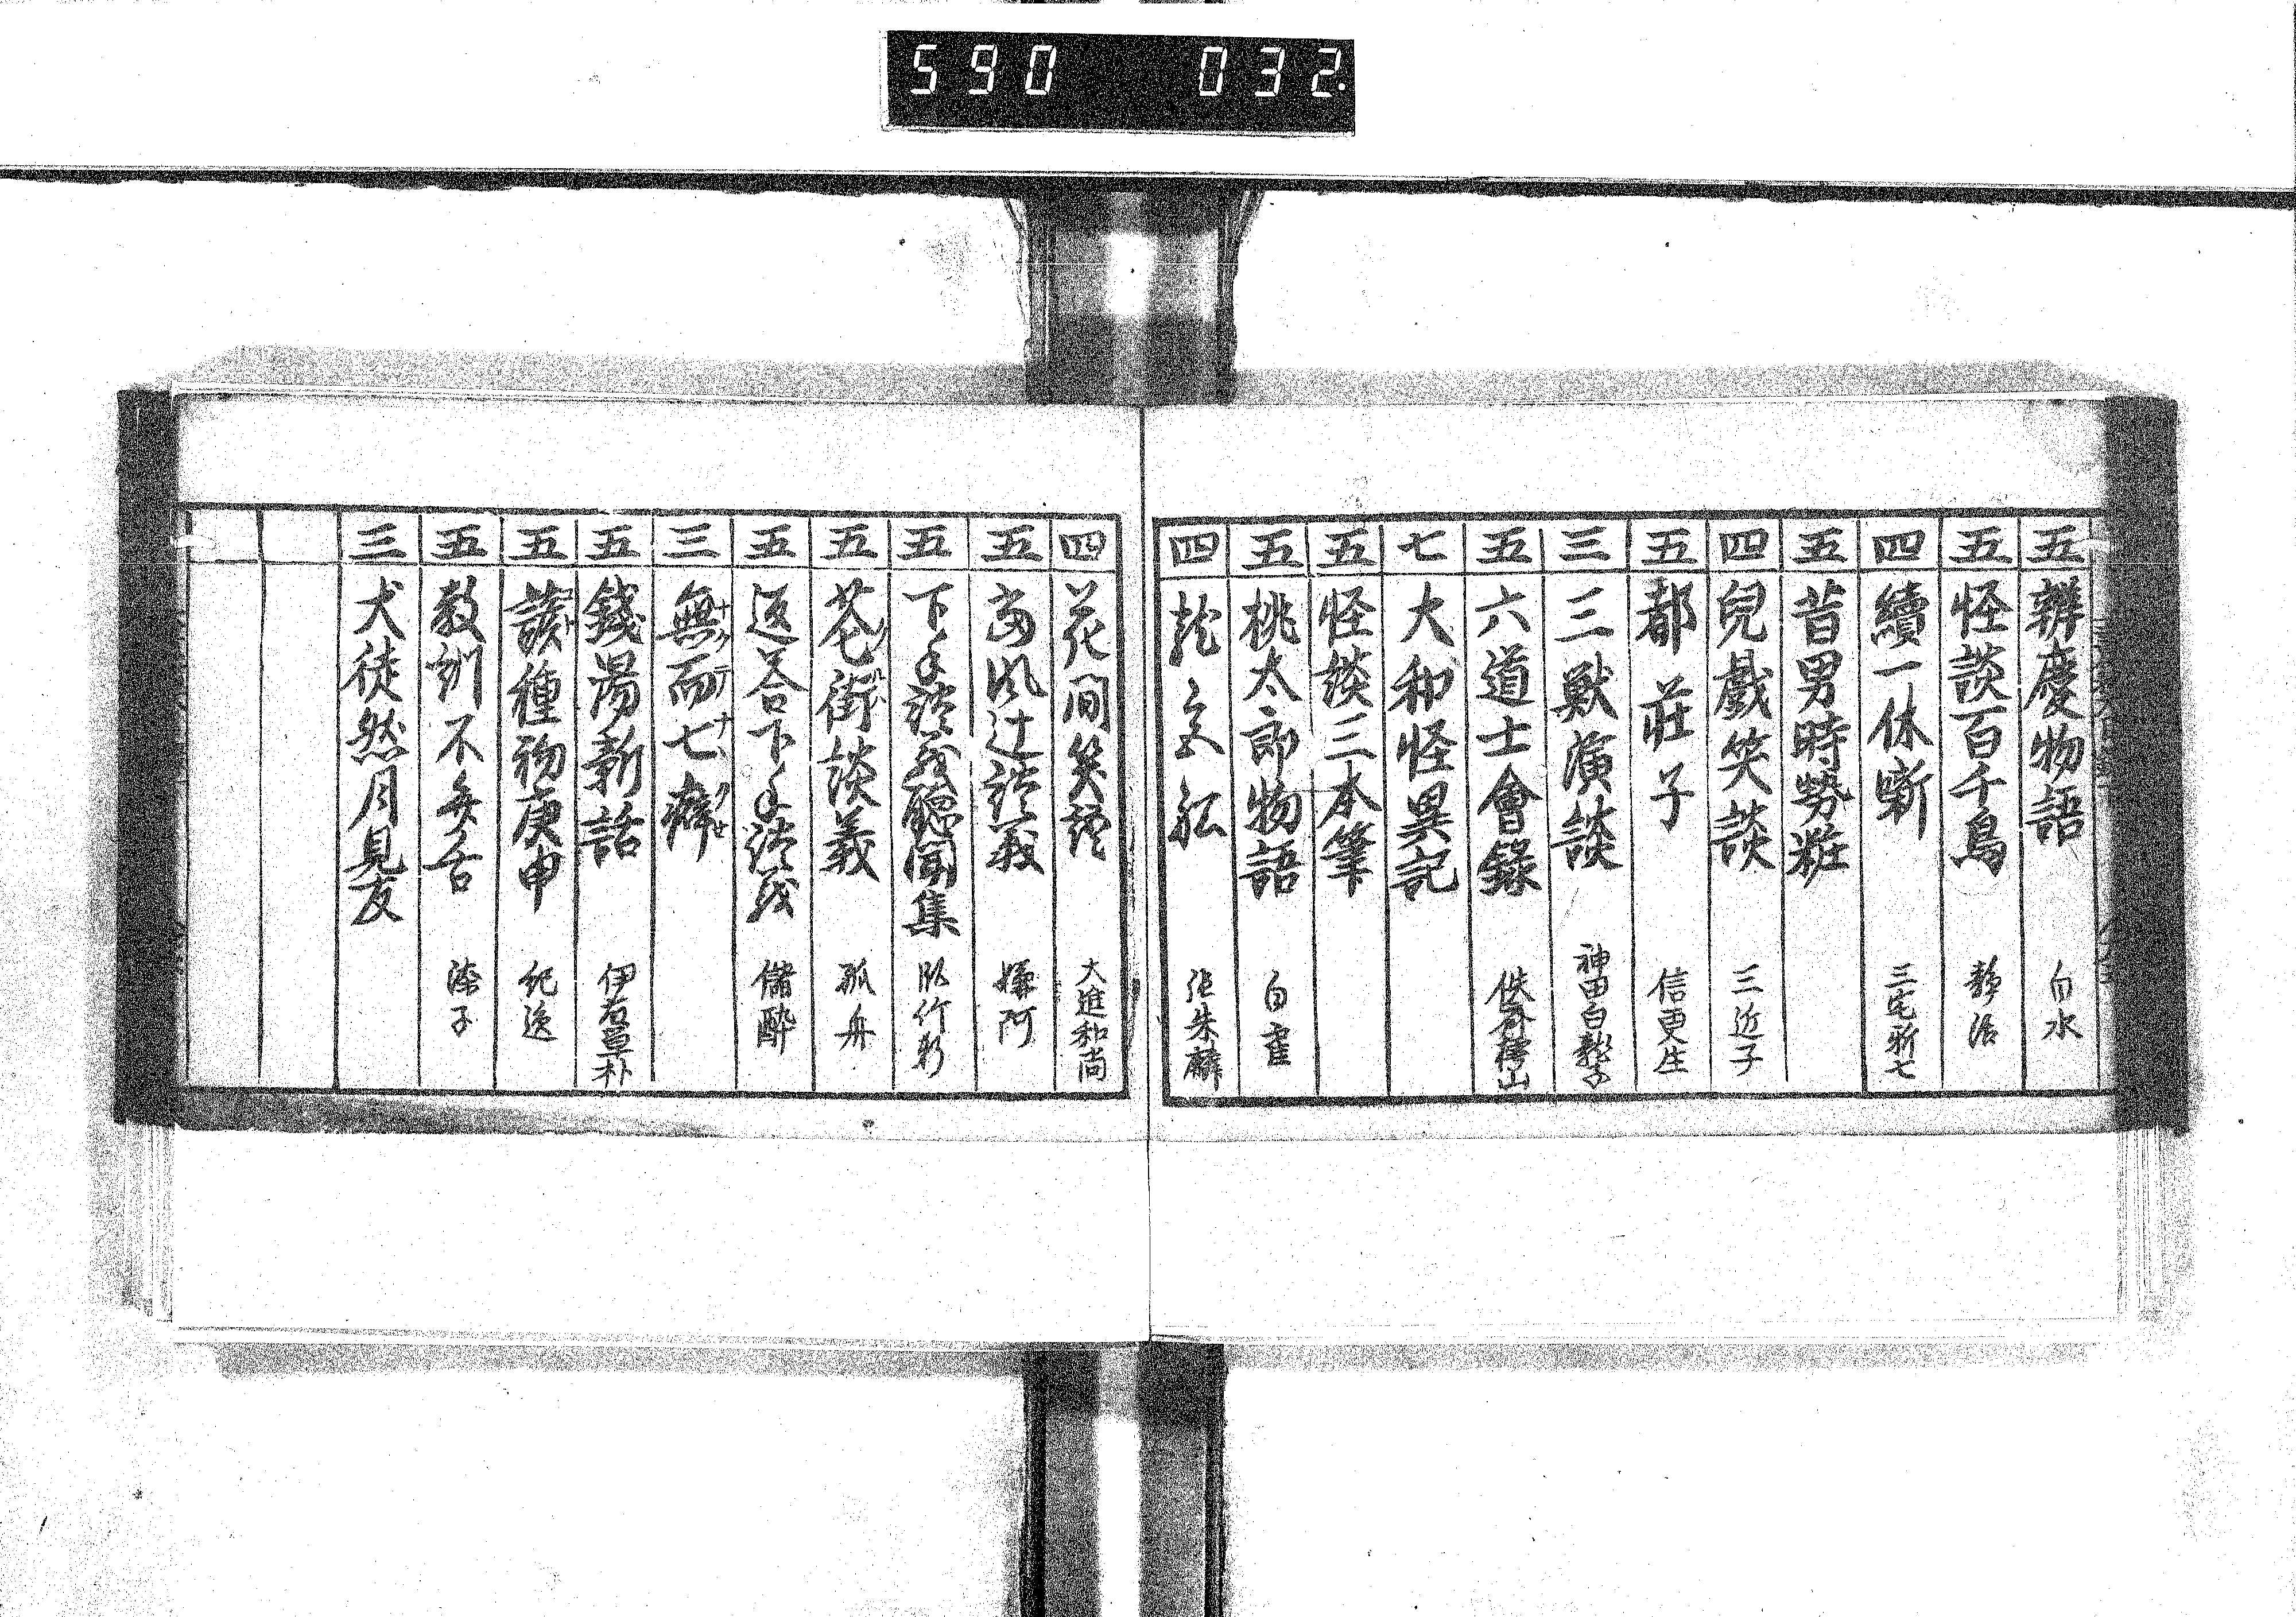 590 032
五 辨慶物語 白水
五 怪談百千鳥 静活
四 續一休噺 三宅新七
五 昔男時勢粧
四 兒戯笑談 三近子
五 都莊子 信更生
三 三獸演談 神田白龍子
五 六道士會錄 佚斎樗山
七 大和怪異記
五 怪談三本筆
五 桃太郎物語 白雀
四 乾坤 張朱鱗
四 花間笑語 大進和尚
五 當風辻談義 嫌阿
五 下手談義聽聞集 臥竹軒
五 花街談義 孤舟
五 返答下手談義 儲酔
三 無而七癖 ナクテナヽクセ
五 錢湯新話 伊藤單朴
五 種初庚申 紀逸
五 教訓不弁舌
三 犬徒然月見友